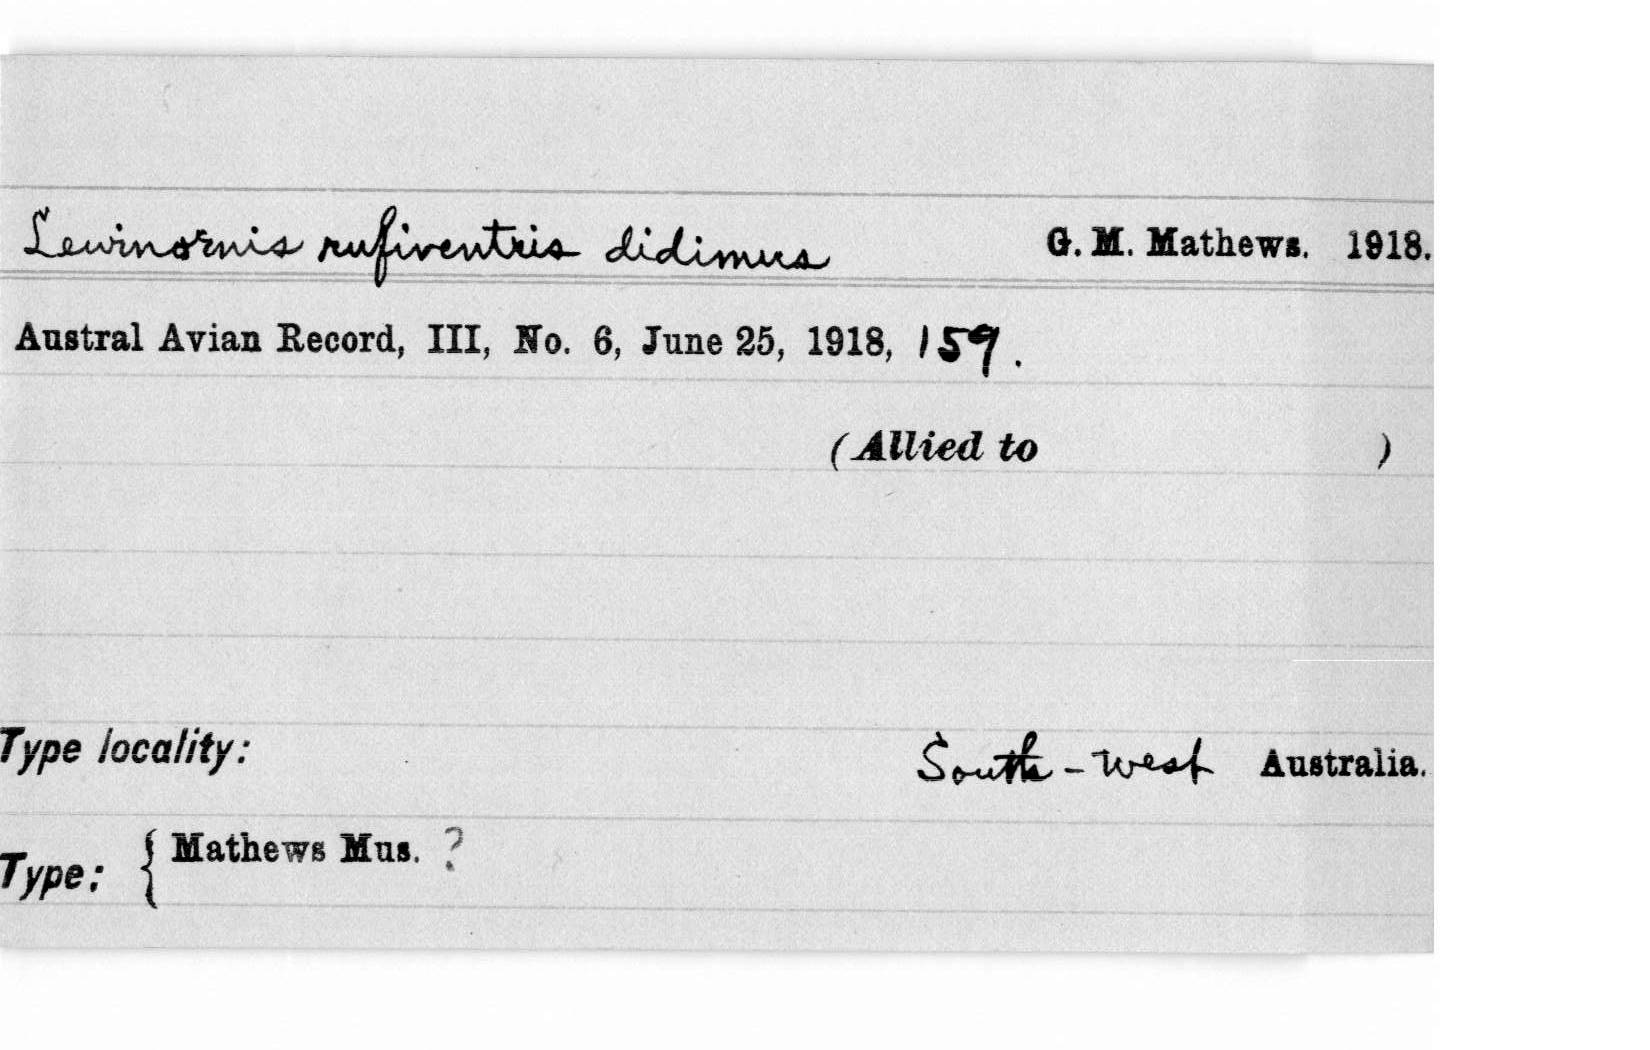 Lewinornis rufiventris didimus G. M. Mathews. 1918.
Austral Avian Record, III, No. 6, June 25, 1918, 159.
(Allied to )
Type locality: South-west Australia.
Type: { Mathews Mus. ?